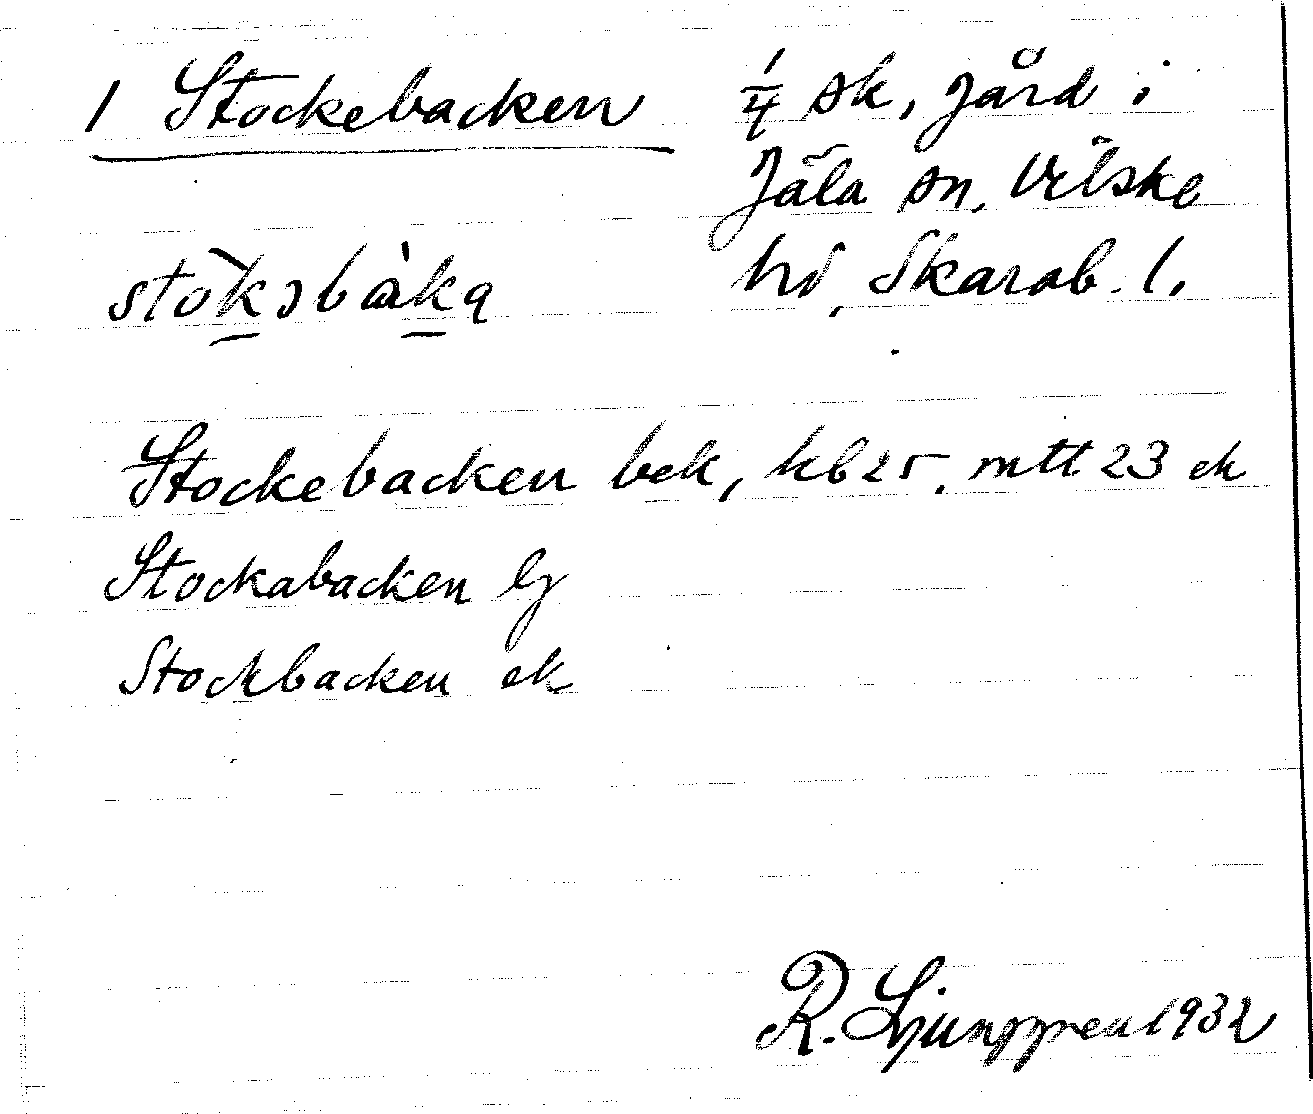 1 Stockebacken 1/4 sk, gård i
Jäla sn, Vilske
hd, Skarab. l.
Stockebacken bek, kb 25, mtt 23 ek
Stockabacken lj
Stockbacken ek
R. Ljunggren 1932